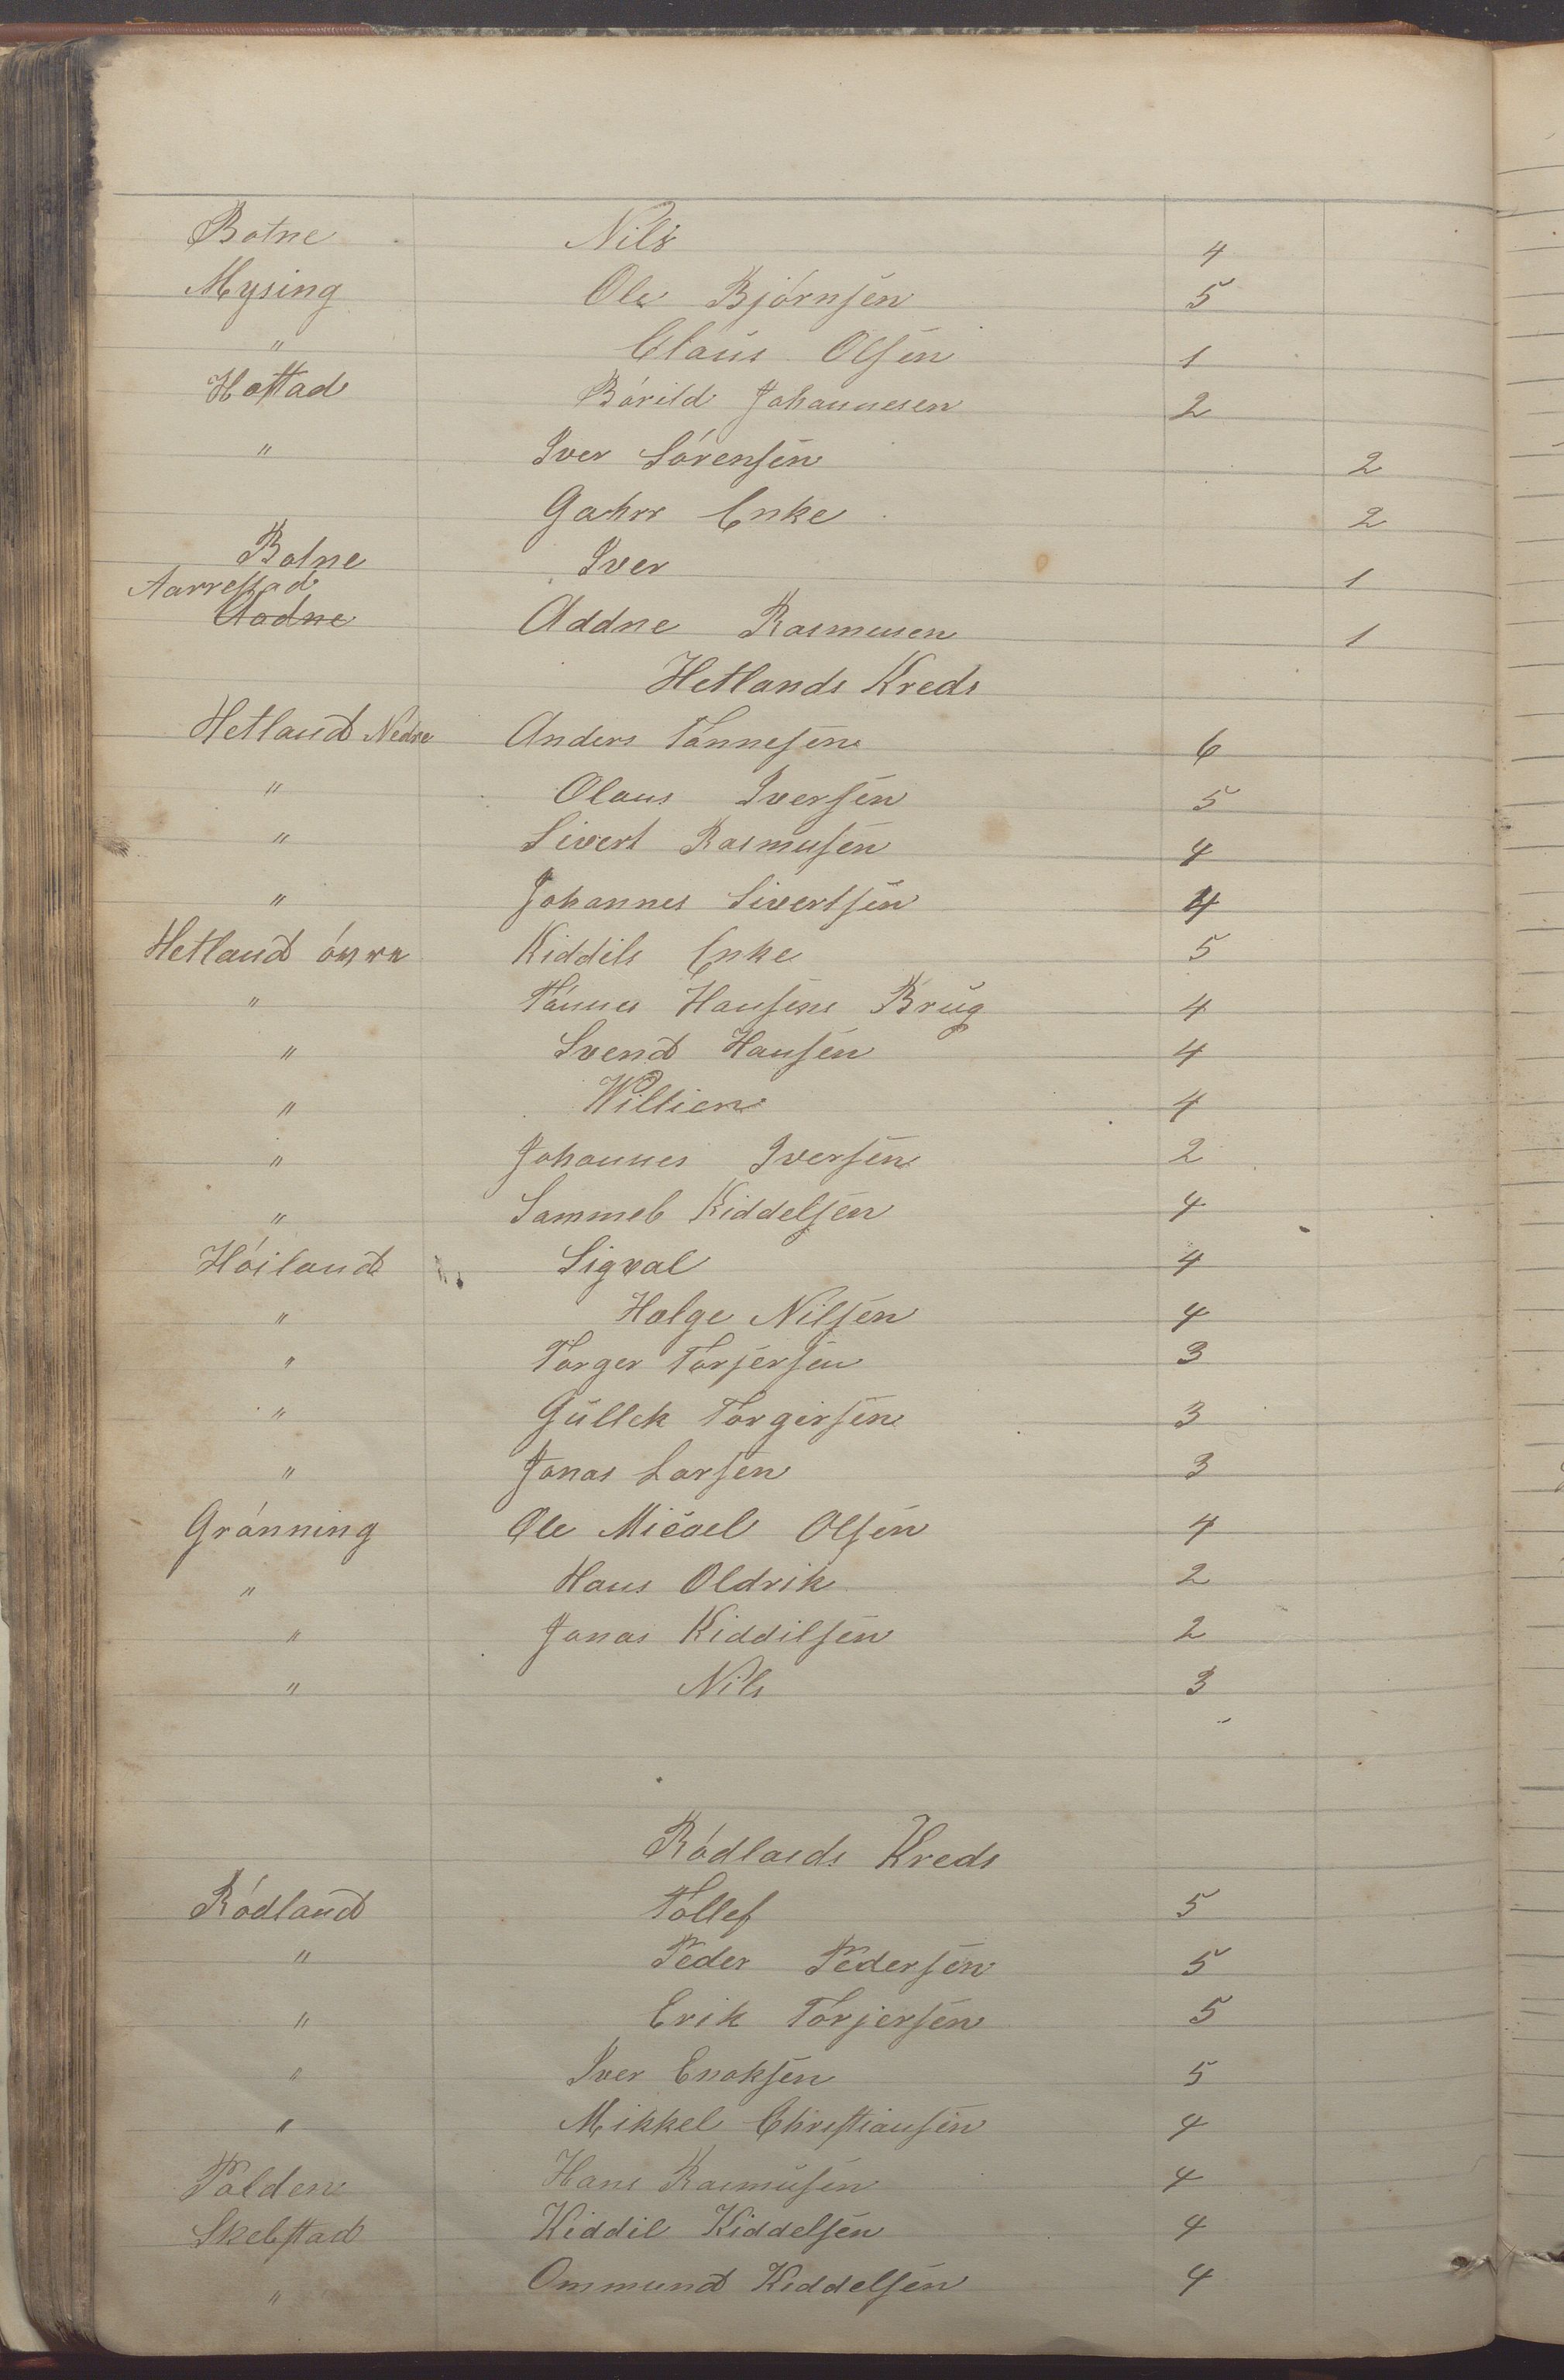 Botne Nils 4
Mysing Ole Bjórnsen 5
" Claus Olsen 1
Hattad Bórild Johannesen 2
" Iver Sórensen 2
Gahrr Enke 2
Botne Iver 1
Aarrestad
Aadne Addne Rasmusen 1
Hetlands Kreds
Hetland Nedre Anders Tónnesen 6
" Olaus Iversen 5
" Sivert Rasmusen 4
" Johannes Sivertsen 4
Hetland Kiddils Enke 5
" Tónnes Hansens Brug 4
" Svend Hansen 4
" 4
" Johannes Iversen 2
" Sammel Kiddelsen 4
Hóiland Sigval 4
" Holge Nilsen 4
" Torger Torjersen 3
" Gullek Torgersen 3
" Jonas Larsen 3
Grónning Ole Micael Olsen 4
" Hans Oldrik 2
" Jonas Kiddilsen 2
" Nils 3
Ródlands Kreds
Ródland Tollef 5
" Peder Pedersen 5
" Erik Torjersen 5
" Iver Enoksen 5
" Mikkel Christiansen 4
Polden Hans Rasmusen 4
Skelstad Kiddil Kiddelsen 4
" Ommund Kiddelsen 4